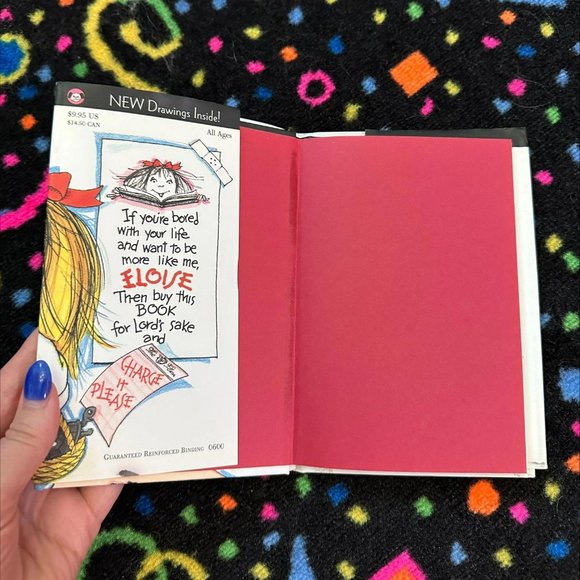 NEW Drawings Inside!
$9.95 US
$14.50 CAN
All Ages
If you're bored
with your life
and want to be
more like me,
ELOISE
Then buy this
BOOK
for Lord's sake
and
CHARGE
it
PLEASE
GUARANTEED REINFORCED BINDING 0600